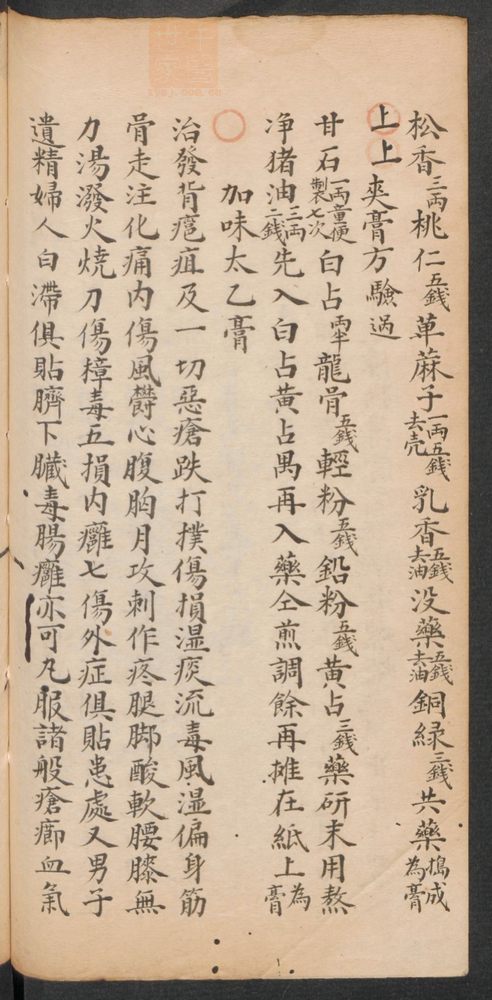 松香三两桃仁五錢草麻子一两五錢去壳乳香五錢去油没藥五錢去油銅緑三錢共藥搗成為膏
上上夾膏方驗過
甘石一両童便製七次白占両半龍骨五錢輕粉五錢鉛粉五錢黄占三錢藥研末用熬
净猪油三両二錢先入白占黄占禼再入藥仝煎調餘再摊在紙上為膏
加味太乙膏
治發背癍疽及一切惡瘡跌打撲傷損湿痰流毒風湿偏身筋
骨走注化痛内傷風欝心腹胸月攻刺作疼腿脚酸軟腰膝無
力湯潑火燒刀傷獐毒五損内癰七傷外症俱貼患處又男子
遺精婦人白滯俱貼臍下臟毒腸癰亦可丸服諸般瘡癤血氣